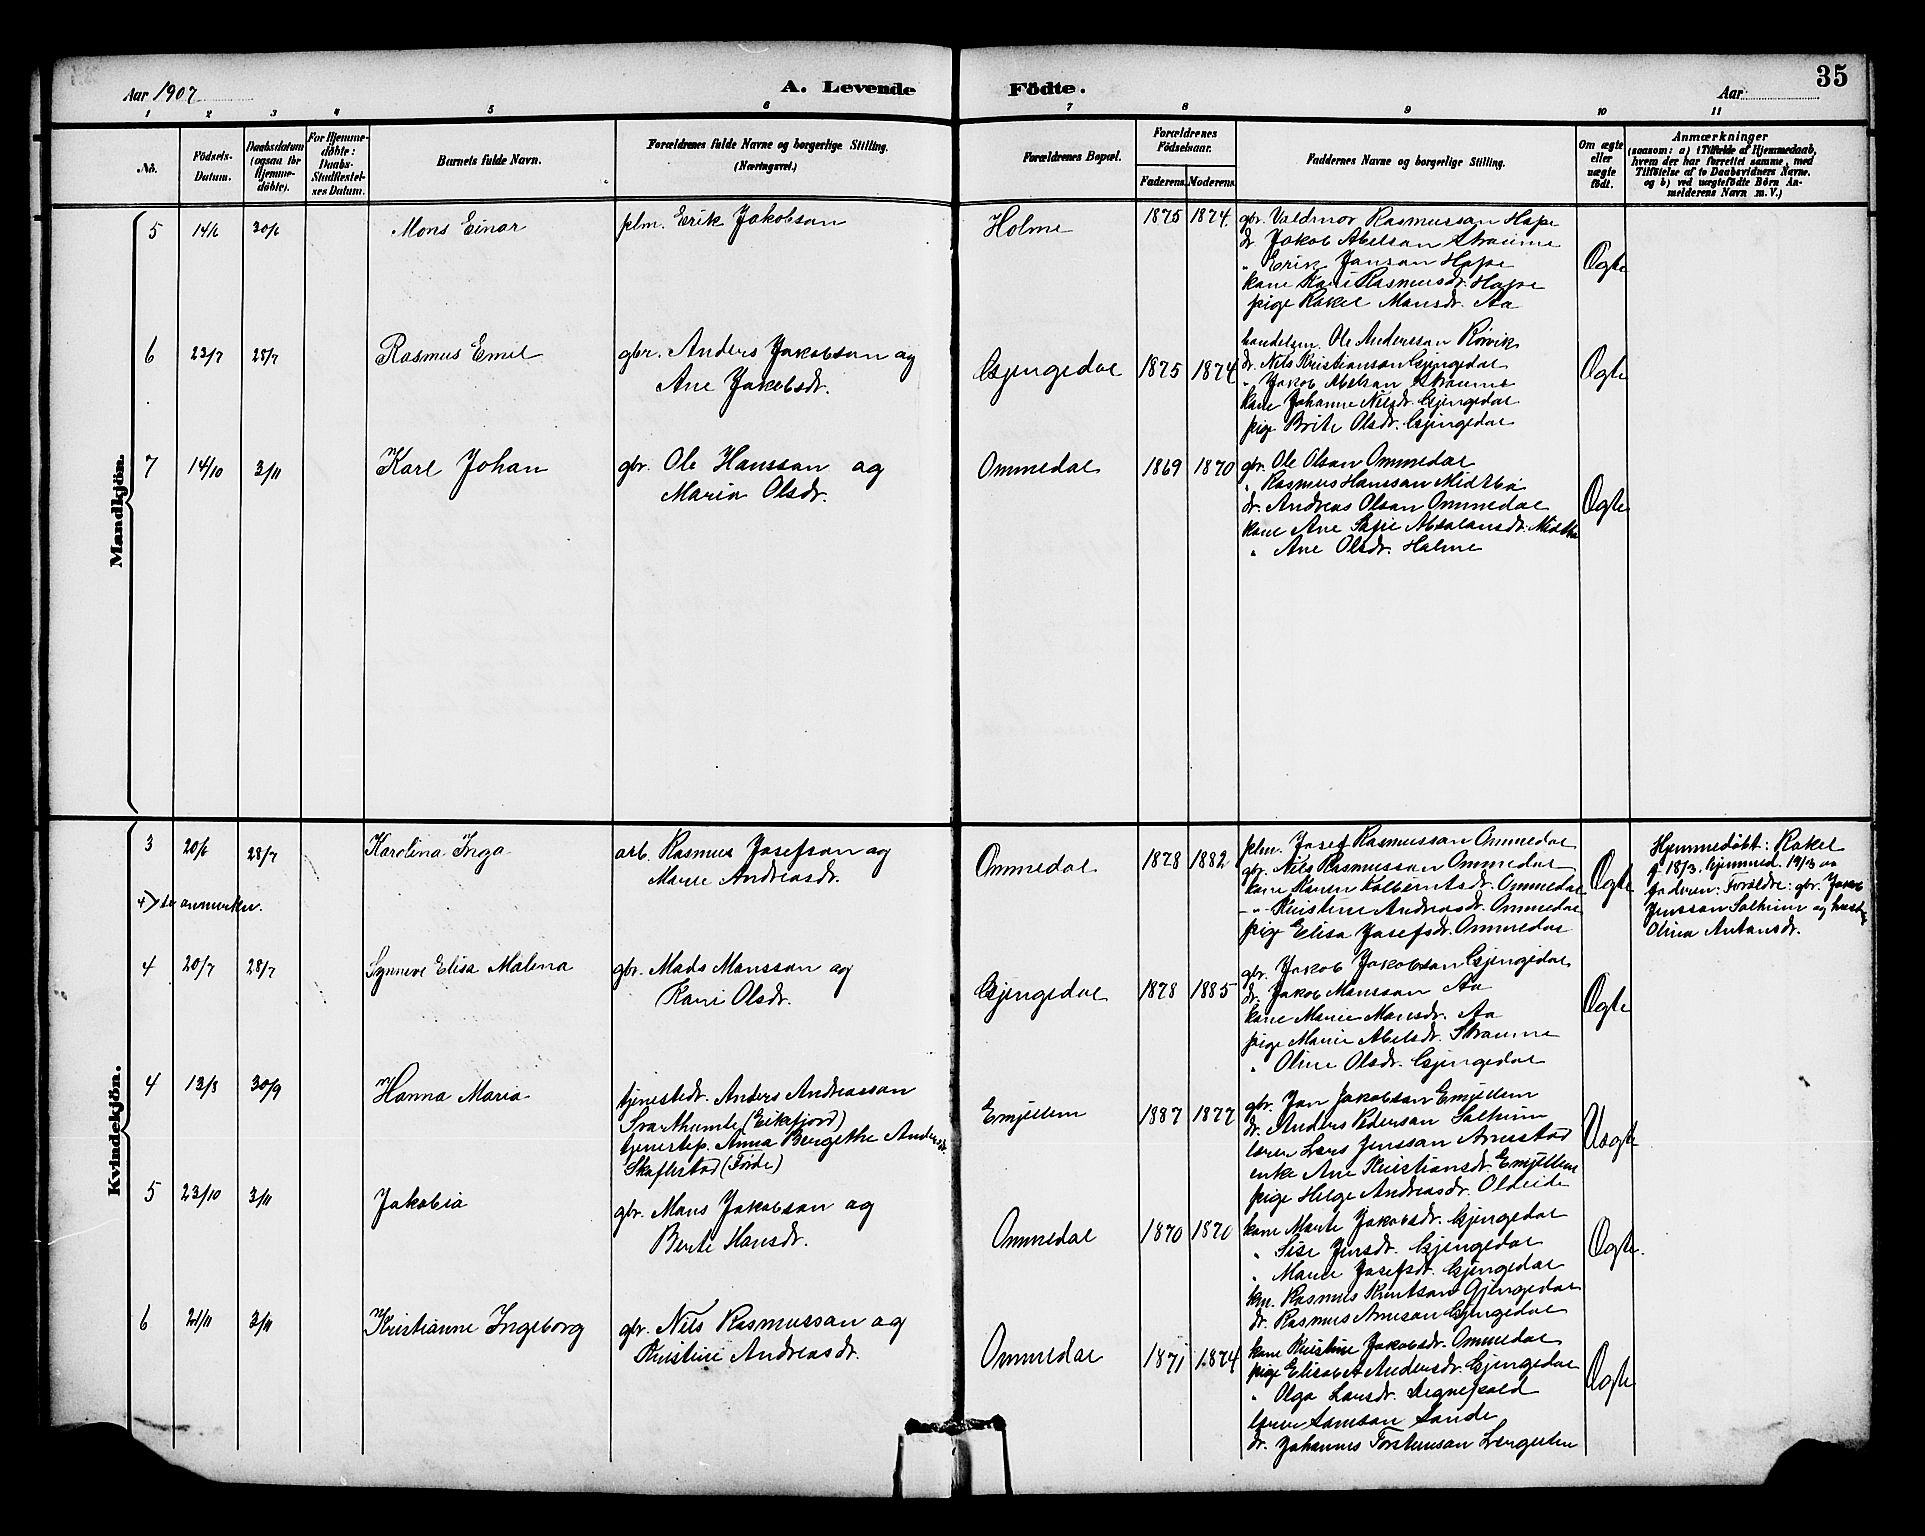 35
Aar 1907
A. Levende Födte.
Aar
1 2 3 4 5 6 7 8 9 10 11
No.
Födsels-Datum.
Daabsdatum (ogsaa for Hjemme-döbte).
For Hjemme-döbte: Daabs-Stadfæstel-ses Datum.
Barnets fulde Navn.
Forældrenes fulde Navne og borgerlige Stilling.
(Næringsvei.)
Forældrenes Bopæl.
Forældrenes Födselsaar.
Faderens. Moderens.
Faddernes Navne og borgerlige Stilling.
Om ægte eller uægte födt.
Anmærkninger
(saasom: a) i Tilfælde af Hjemmedaab,
hvem der har forrettet samme, med
Tilföielse af to Daabsvidners Navne.
og b) ved uægtefödte Börn An-
melderens Navn m. V.)
Mandkjön.
5 14/6 30/6 Mons Einar plm. Erik Jakobson Holme 1875 1874. Ægte
gbr. Valdmor Rasmussan Hope
dr. Jakob Abelsan Straume
" Erik Jansan Hope
kone Kari Rasmusdr. Hope
pige Rakel Mansdr. Aa
6 23/7 28/7 Rasmus Emil gbr. Anders Jakobsan og
Ane Jakobsdr.
Gjengedal 1875 1874 Ægte
handelsm. Ole Anderssan Rørvik
dr. Nils Kristiansan Gjengedal
" Jakob Abelsan Straume
kone Johanne Nilsdr. Gjengedal
pige Brite Olsdr. Gjengedal
7 14/10 3/11 Karl Johan gbr. Ole Hanssan og
Maria Olsdr.
Ommedal 1869 1870 Ægte
gbr. Ole Olsan Ommedal
" Rasmus Hanssan Midtbø
dr. Andreas Olsan Ommedal
kone Ane Sofie Absalansdr. Midtbø
" Ane Olsdr. Holme
Kvindekjön.
3 20/6 28/7 Karolina Inga arb. Rasmus Josefsan og
Marie Andreasdr.
+) se anmerkn.
Ommedal 1878 1882 Ægte
plm. Josef Rasmussan Ommedal
gbr. Nils Rasmussan Ommedal
kone Karen Kolbeintsdr. Ommedal
-"- Kristine Andreasdr. Ommedal
pige Elisa Josefsdr. Ommedal
Hjemmedøbt: Rakel
f. 18/3. hjemmed. 19/3 av
faderen: Forældre: gbr. Jakob
Jenssan Solheim og hustr.
Olina Antansdr.
4 20/7 28/7 Synneve Elisa Malena gbr. Mads Monssan og
Kari Olsdr.
Gjengedal 1878 1885 Ægte
gbr. Jakob Jakobsan Gjengedal
dr. Jakob Monssan Aa
kone Marie Mansdr. Aa
pige Marie Abelsdr. Straume
" Oline Olsdr. Gjengedal
4 13/8 30/9 Hanna Maria tjenestedr. Anders Andreassan
Svarthumle (Eikefjord)
tjenestep. Anna Bergethe Andersdr.
Skaflestad (Førde)
Emjellem 1887 1877 Uægte
gbr. Jan Jakobsan Emjellem
dr. Anders Pedersan Solheim
lærer Lars Jenssan Arnestad
enke Ane Kristiansdr. Emjellem
pige Helge Andreasdr. Oldeide
5 23/10 3/11 Jakobia gbr. Mons Jakobsan og
Berte Hansdr.
Ommedal 1870 1870 Ægte.
kone Marte Jakobsdr. Gjengedal
" Sise Jensdr. Gjengedal
" Marie Josefsdr. Gjengedal
km. Rasmus Knutsan Gjengedal
dr. Rasmus Arnesan Gjengedal
6 3/11 Kristianne Ingeborg gbr. Nils Rasmussan og
Kristine Andreasdr.
Ommedal 1871 1874 Ægte
kone Kristine Jakobsdr. Ommedal
pige Elisabet Andersdr. Gjengedal
" Olga Larsdr.
lærer Samsan Sande
dr. Johannes Torsteinsan